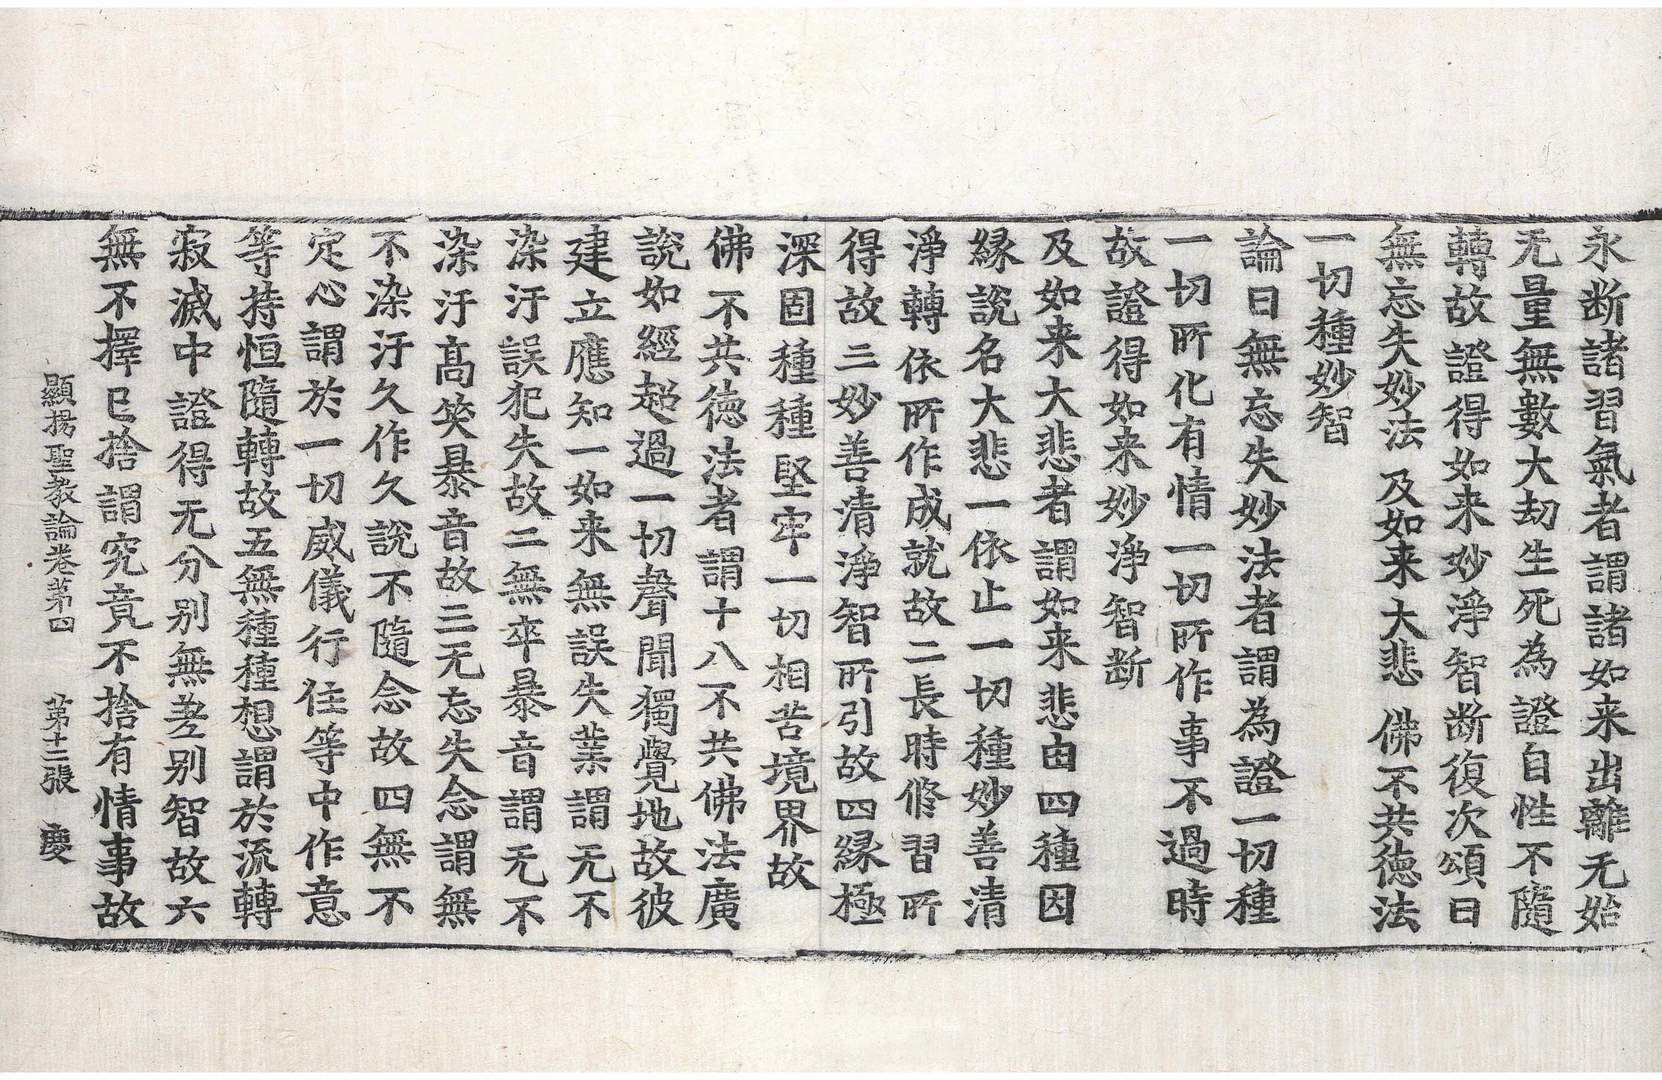 永断諸習氣者謂諸如来出離无始
无量無數大劫生死為證自性不隨
轉故證得如来妙淨智断復次頌曰
無忘失妙法 及如来大悲 佛不共德法
一切種妙智
論曰無忘失妙法者謂為證一切種
一切所化有情一切所作事不過時
故證得如来妙淨智断
及如来大悲者謂如来悲由四種因
縁說名大悲一依止一切種妙善清
淨轉依所作成就故二長時修習所
得故三妙善清淨智所引故四縁極
深固種種堅牢一切相苦境界故
佛不共德法者謂十八不共佛法廣
說如經超過一切聲聞獨覺地故彼
建立應知一如来無誤失業謂无不
染汙誤犯失故二無卒暴音謂无不
染汙高笑暴音故三无忘失念謂無
不染汙久作久說不隨念故四無不
定心謂於一切威儀行住等中作意
等持恒隨轉故五無種種想謂於流轉
寂滅中證得无分别無差别智故六
無不擇已捨謂究竟不捨有情事故
顯揚聖教論卷苐四 苐十二張 慶